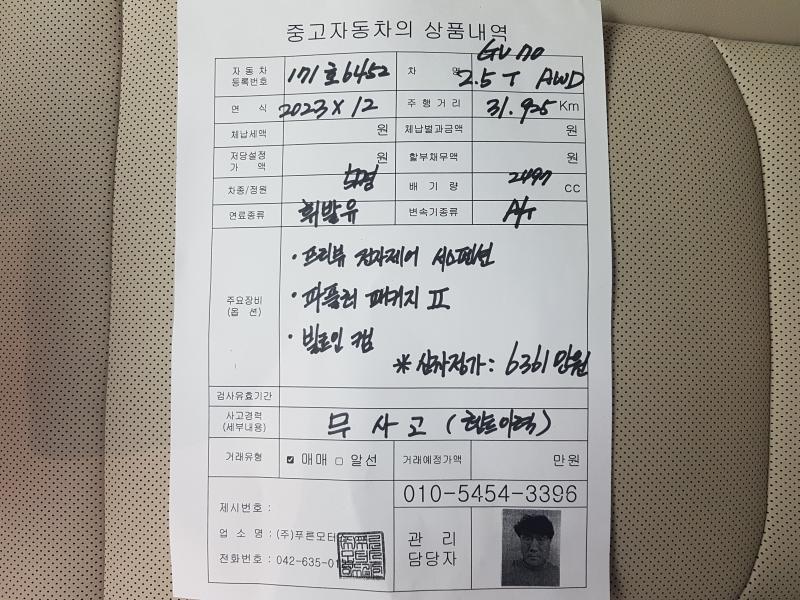 중고자동차의 상품내역
자동차 등록번호 171호6452 차 명 GV70 2.5T AWD
연 식 2023×12 주행거리 31.925 Km
체납세액 원 체납벌과금액 원
저당설정 가 액 원 할부채무액 원
차종/정원 5명 배기량 2497 cc
연료종류 휘발유 변속기종류 A/T
주요장비 (옵 션)
· 프리뷰 전자제어 서스펜션
· 파퓰러 패키지 II
· 빌트인 캠
※ 신차정가: 6361만원
검사유효기간
사고경력 (세부내용) 무사고 (렌트이력)
거래유형 ☑ 매매 □ 알선 거래예정가액 만원
010-5454-3396
제시번호 :
업 소 명 : (주)푸른모터
전화번호 : 042-635-01
관 리 담당자